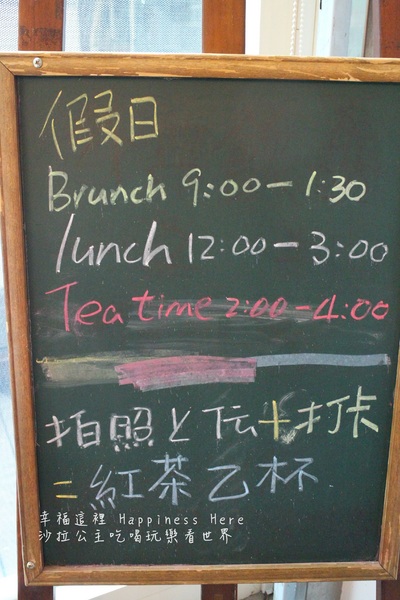 假日
Brunch 9:00-1:30
lunch 12:00-3:00
Tea time 2:00-4:00
拍照上伝+打卡
=紅茶乙杯
幸福這裡 Happiness Here
沙拉公主吃喝玩樂看世界